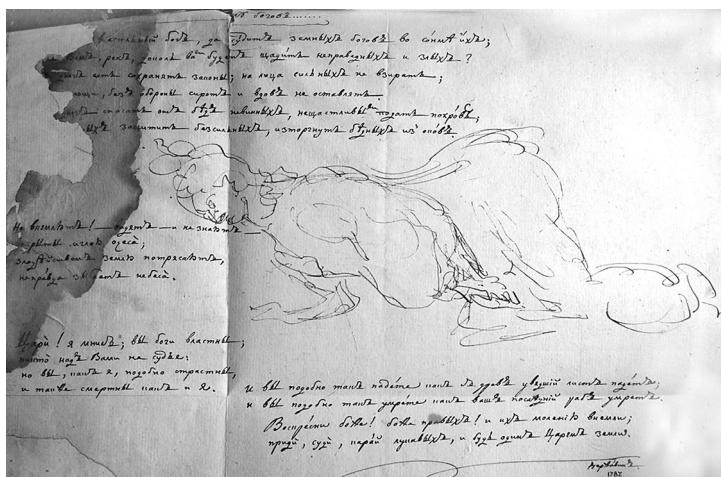 боговъ.......
богъ, да судитъ земныхъ боговъ во сонмѣ ихъ;
рекъ, доколь вы будете щадить неправедныхъ и злыхъ?
есть сохранять законы; на лица сильныхъ не взирать;
безъ обороны сиротъ и вдовъ не оставлять.
спасать отъ бѣдъ невинныхъ, нещастливымъ подать покровъ;
защитить безсильныхъ, исторгнуть бѣдныхъ изъ оковъ.
Не внемлютъ! — видятъ — и не знаютъ
покрыты мглою очеса;
злодѣйствомъ земля потрясаетъ,
неправда зыблетъ небеса.
Цари! я мнилъ; вы боги властны;
никто надъ Вами не судья:
но вы, какъ я, подобно страстны,
и также смертны какъ и я.
и вы подобно такъ падете какъ съ древъ увядшій листъ падетъ;
и вы подобно такъ умрете какъ вашъ послѣдній рабъ умретъ.
Воскресни боже! боже правыхъ! и ихъ моленію внемли;
приди, суди, карай лукавыхъ, и будь одинъ Царемъ земли.
Державинъ